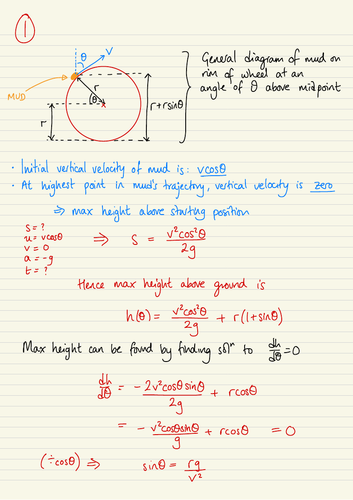 1
θ
v
MUD
r
θ
r
r+rsinθ
General diagram of mud on
rim of wheel at an
angle of θ above midpoint
· Initial vertical velocity of mud is: vcosθ
· At highest point in mud's trajectory, vertical velocity is zero
⇒ max height above starting position
s = ?
u = vcosθ
v = 0
a = -g
t = ?
⇒ s = v²cos²θ / 2g
Hence max height above ground is
h(θ) = v²cos²θ / 2g + r(1+sinθ)
Max height can be found by finding solⁿ to dh/dθ = 0
dh/dθ = -2v²cosθsinθ / 2g + rcosθ
= -v²cosθsinθ / g + rcosθ = 0
(÷cosθ) ⇒ sinθ = rg / v²